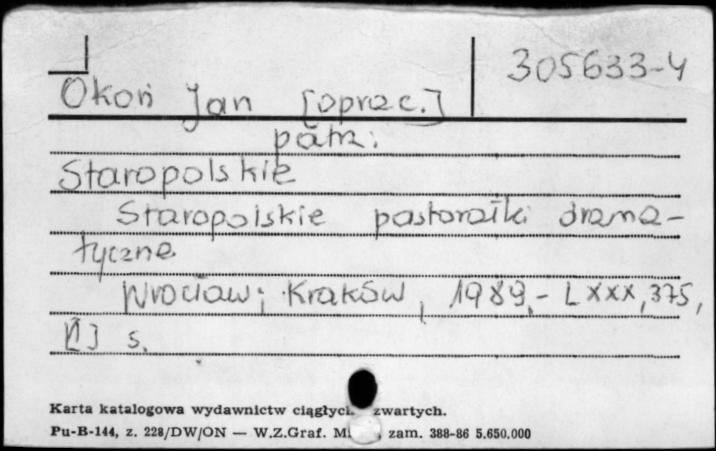 305633-4
Okoń Jan [oprac.]
patrz:
Staropolskie
Staropolskie pastorałki drama-
tyczne
Wrocław; Kraków, 1989.- LXXX, 375,
[1] s.
Karta katalogowa wydawnictw ciągłych zwartych.
Pu-B-144, z. 228/DW/ON — W.Z.Graf. zam. 388-86 5.650.000